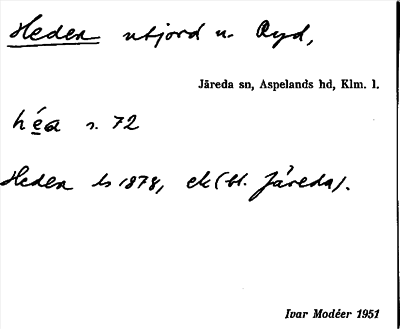 Heden utjord u. Ryd,
Järeda sn, Aspelands hd, Klm. l.
héa s. 72
Heden ls 1878, ek (bl. Järeda).
Ivar Modéer 1951